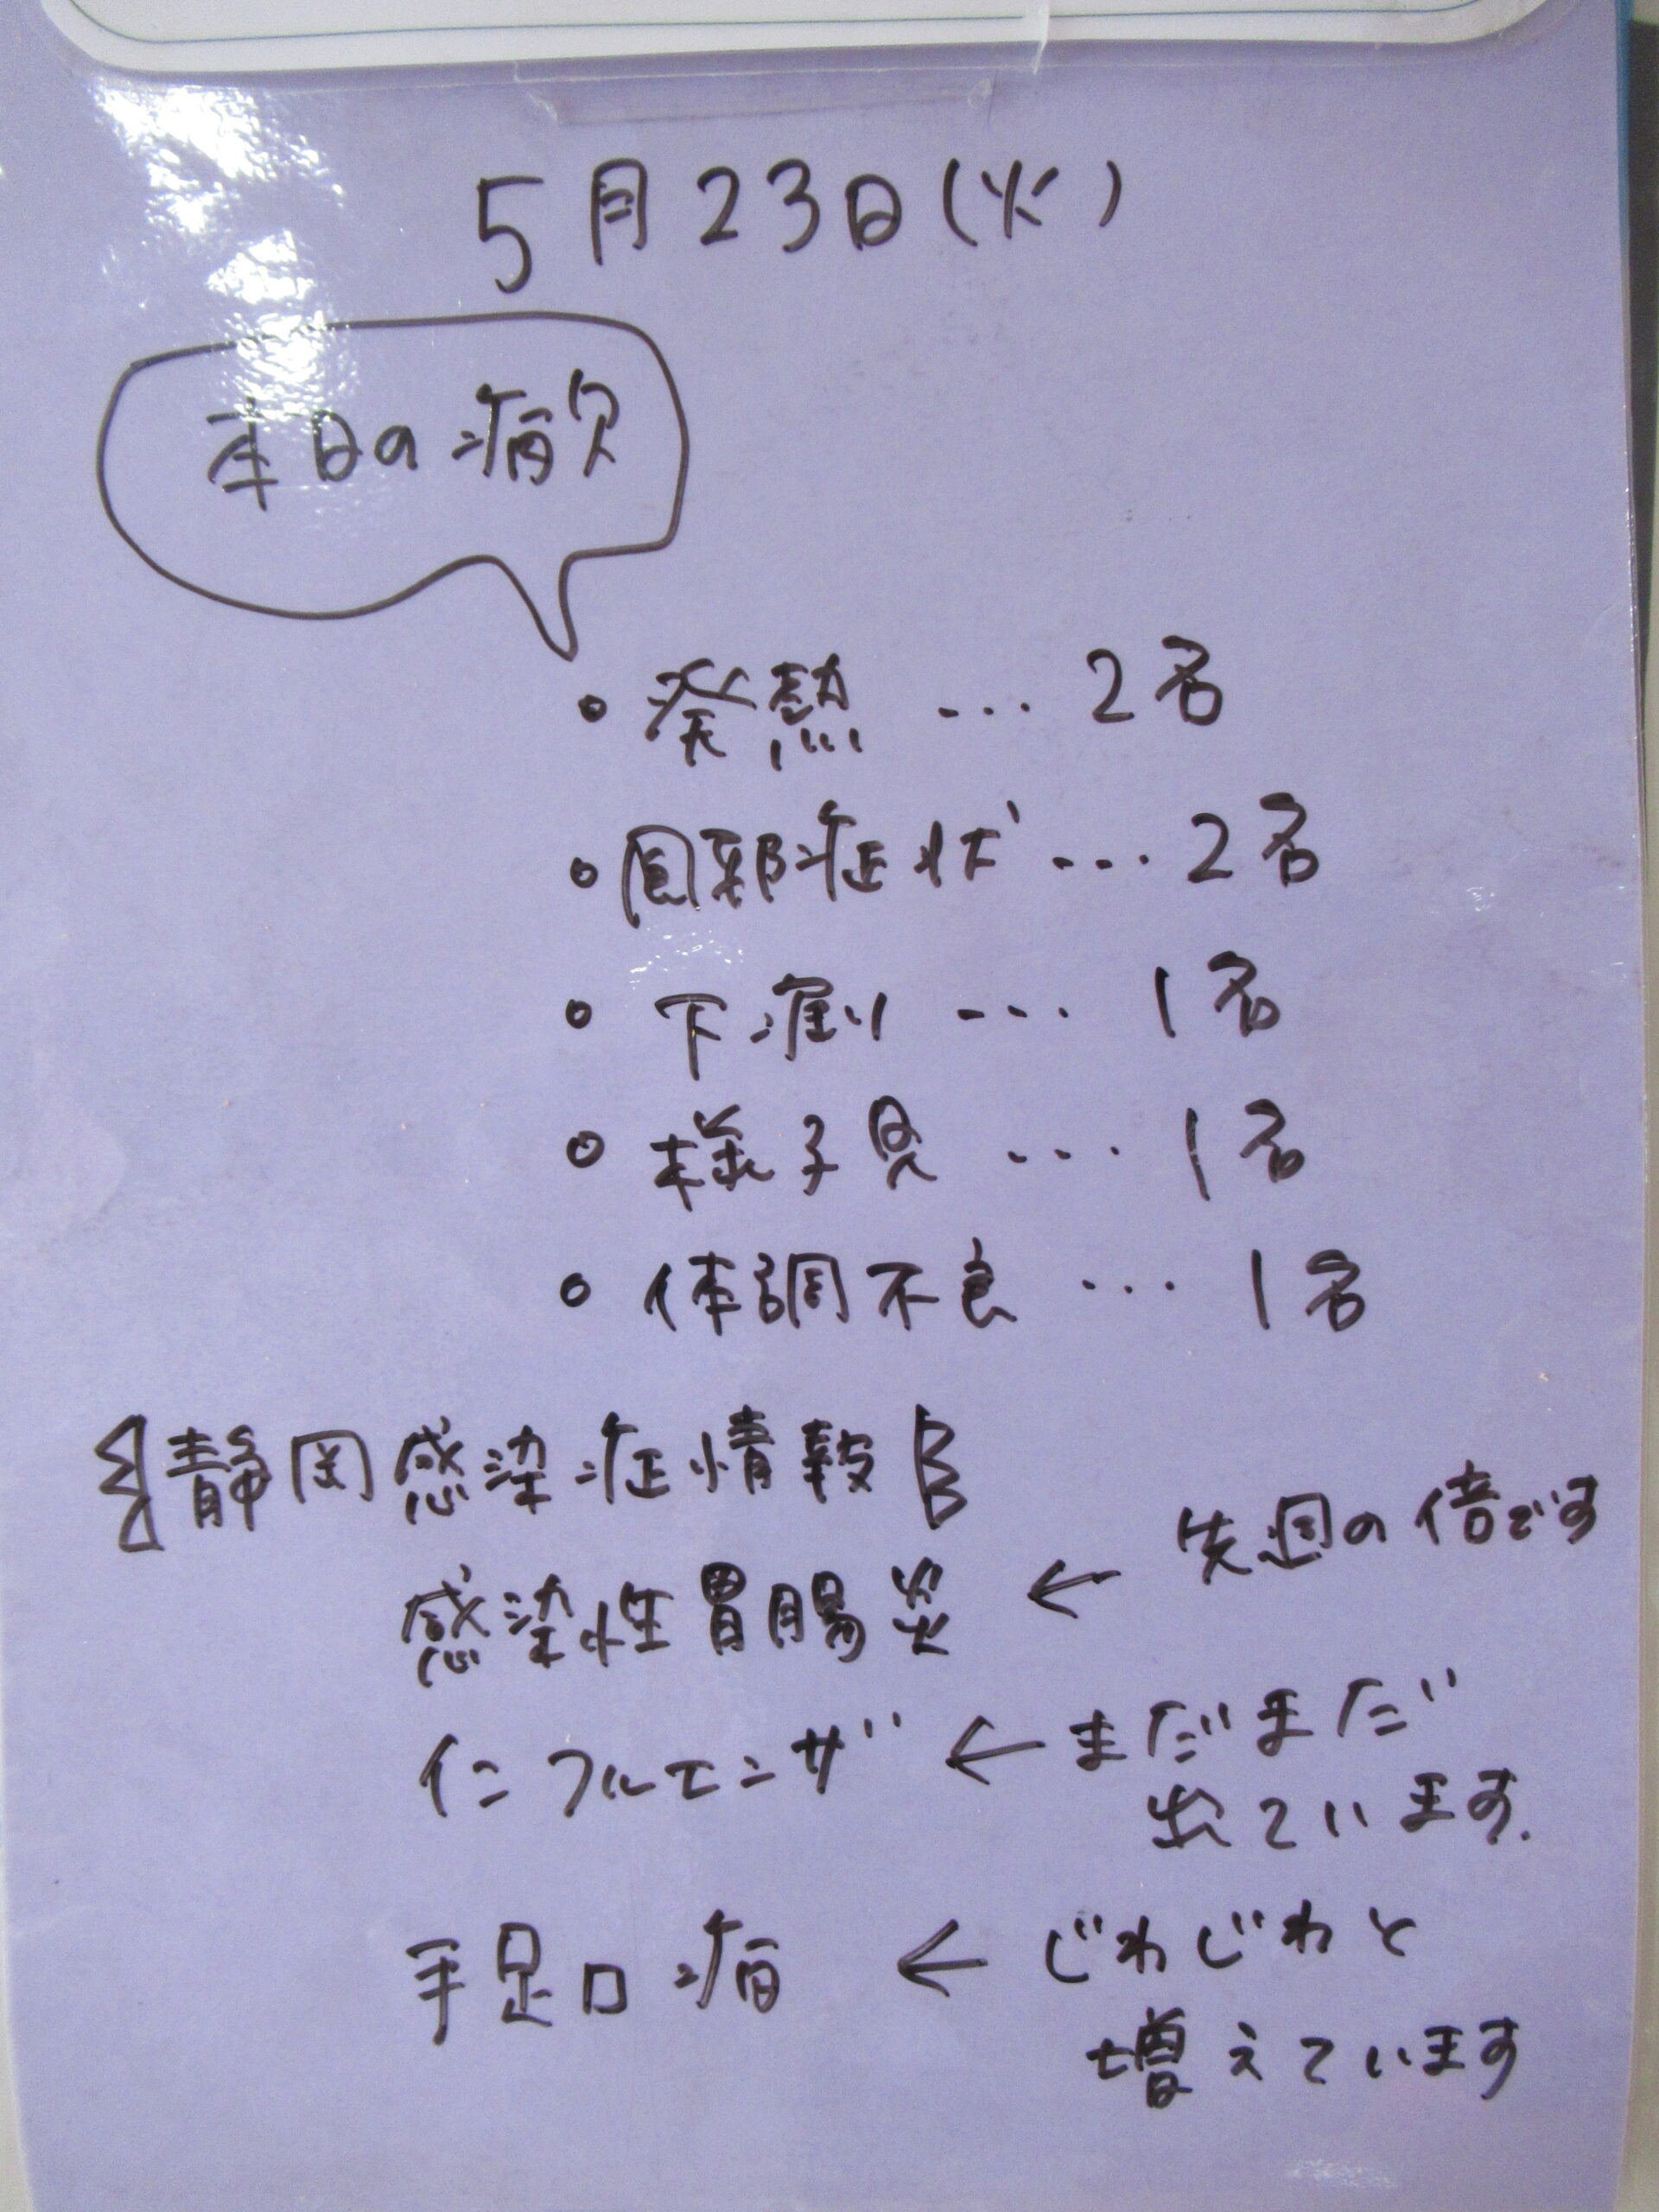 5月23日(火)
本日の病欠
• 発熱 … 2名
• 風邪症状 … 2名
• 下痢 … 1名
• 様子見 … 1名
• 体調不良 … 1名
静岡感染症情報
感染性胃腸炎 ← 先週の倍です
インフルエンザ ← まだまだ
出ています.
手足口病 ← じわじわと
増えています